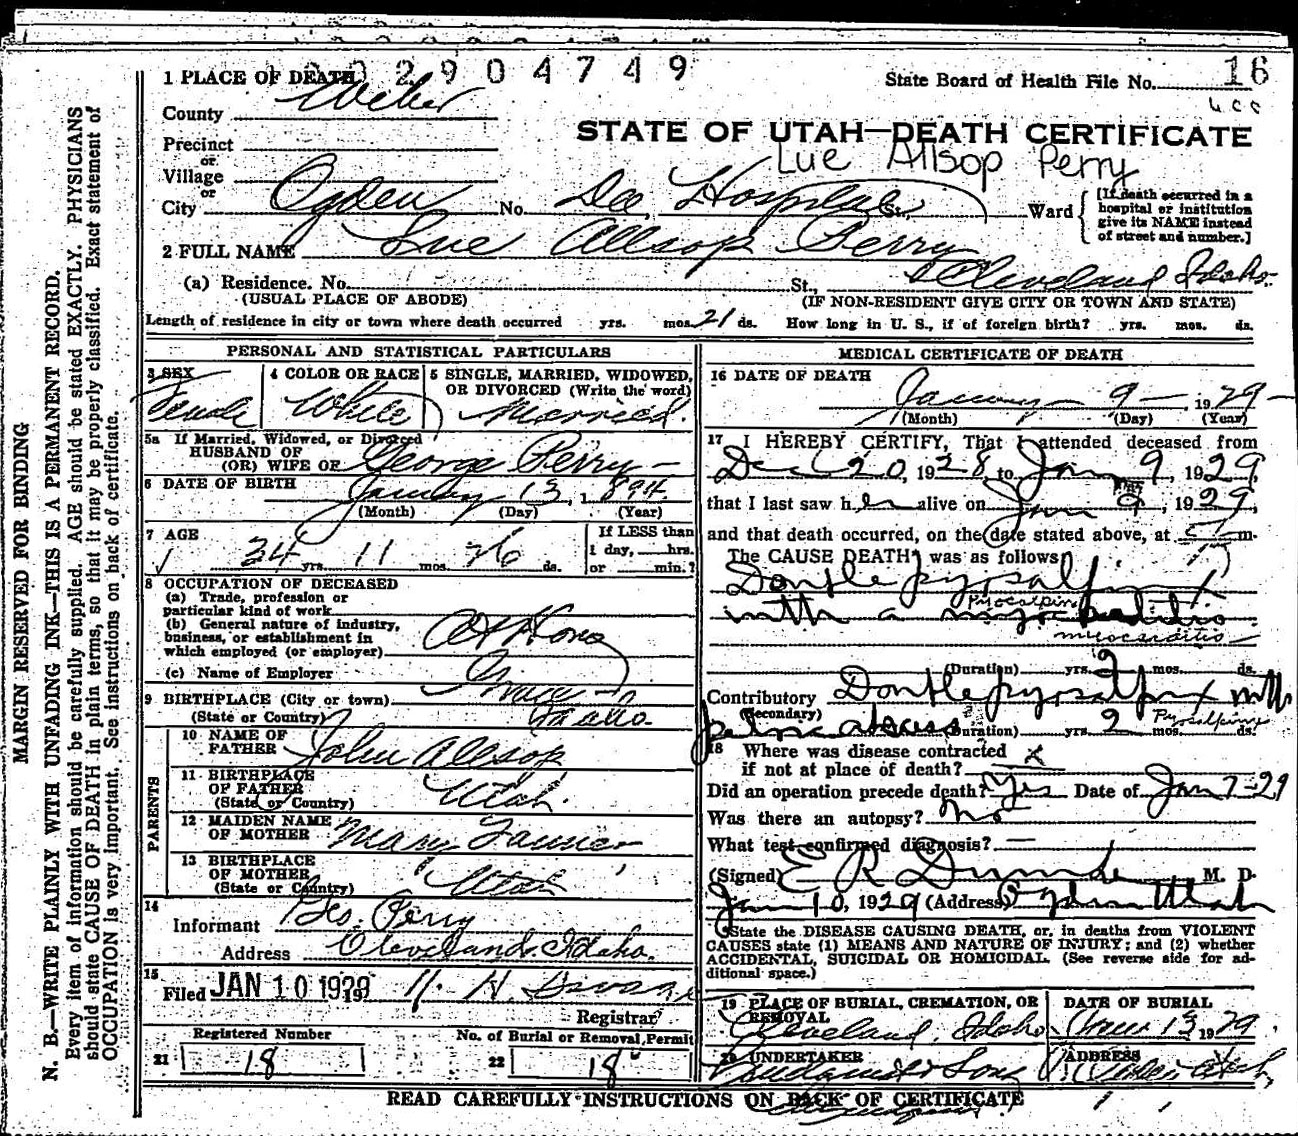 1 PLACE OF DEATH 0 0 2 9 0 4 7 4 9
State Board of Health File No. 16
County Weber
STATE OF UTAH—DEATH CERTIFICATE
Precinct
or
Village
or
Lue Allsop Perry
City Ogden No. Dee Hospital St., Ward
[If death occurred in a
hospital or institution
give its NAME instead
of street and number.]
2 FULL NAME Lue Allsop Perry
(a) Residence. No. St., Cleveland Idaho
(USUAL PLACE OF ABODE) (IF NON-RESIDENT GIVE CITY OR TOWN AND STATE)
Length of residence in city or town where death occurred yrs. mos. 21 ds. How long in U. S., if of foreign birth? yrs. mos. ds.
PERSONAL AND STATISTICAL PARTICULARS
3 SEX
Female
4 COLOR OR RACE
White
5 SINGLE, MARRIED, WIDOWED,
OR DIVORCED (Write the word)
Married.
5a If Married, Widowed, or Divorced
HUSBAND OF
(OR) WIFE OF George Perry
6 DATE OF BIRTH January 13, 1894
(Month) (Day) (Year)
7 AGE
34 yrs. 11 mos. 26 ds.
If LESS than
1 day, hrs.
or min.?
8 OCCUPATION OF DECEASED
(a) Trade, profession or
particular kind of work
(b) General nature of industry,
business, or establishment in
which employed (or employer) At Home
(c) Name of Employer
9 BIRTHPLACE (City or town)
(State or Country) Idaho.
PARENTS
10 NAME OF
FATHER John Allsop
11 BIRTHPLACE
OF FATHER
(State or Country) Utah.
12 MAIDEN NAME
OF MOTHER Mary
13 BIRTHPLACE
OF MOTHER
(State or Country) Utah
14
Informant Geo. Perry
Address Cleveland. Idaho.
15
Filed JAN 10 1929 19
Registrar
Registered Number
21 18
No. of Burial or Removal Permit
22 18
MEDICAL CERTIFICATE OF DEATH
16 DATE OF DEATH
January 9 1929
(Month) (Day) (Year)
17 I HEREBY CERTIFY, That I attended deceased from
Dec 20, 1928 to Jan 9, 1929,
that I last saw her alive on Jan 9, 1929,
and that death occurred, on the date stated above, at m.
The CAUSE DEATH was as follows
Double pyosalpinx
with a myocarditis
myocarditis
(Duration) yrs. 2 mos. ds.
Contributory Double pyosalpinx with
(Secondary)
pelvic abscess (Duration) yrs. 2 mos. ds.
18 Where was disease contracted
if not at place of death? x
Did an operation precede death? Yes Date of Jan 7-29
Was there an autopsy? No
What test confirmed diagnosis? —
(Signed) E R M. D.
Jan 10, 1929 (Address) Ogden Utah
State the DISEASE CAUSING DEATH, or, in deaths from VIOLENT
CAUSES state (1) MEANS AND NATURE OF INJURY; and (2) whether
ACCIDENTAL, SUICIDAL OR HOMICIDAL. (See reverse side for ad-
ditional space.)
19 PLACE OF BURIAL, CREMATION, OR
REMOVAL
Cleveland, Idaho
DATE OF BURIAL
Jan 13 1929.
20 UNDERTAKER
ADDRESS
READ CAREFULLY INSTRUCTIONS ON BACK OF CERTIFICATE
MARGIN RESERVED FOR BINDING
N. B.—WRITE PLAINLY WITH UNFADING INK—THIS IS A PERMANENT RECORD.
Every item of information should be carefully supplied. AGE should be stated EXACTLY. PHYSICIANS
should state CAUSE OF DEATH in plain terms, so that it may be properly classified. Exact statement of
OCCUPATION is very important. See instructions on back of certificate.